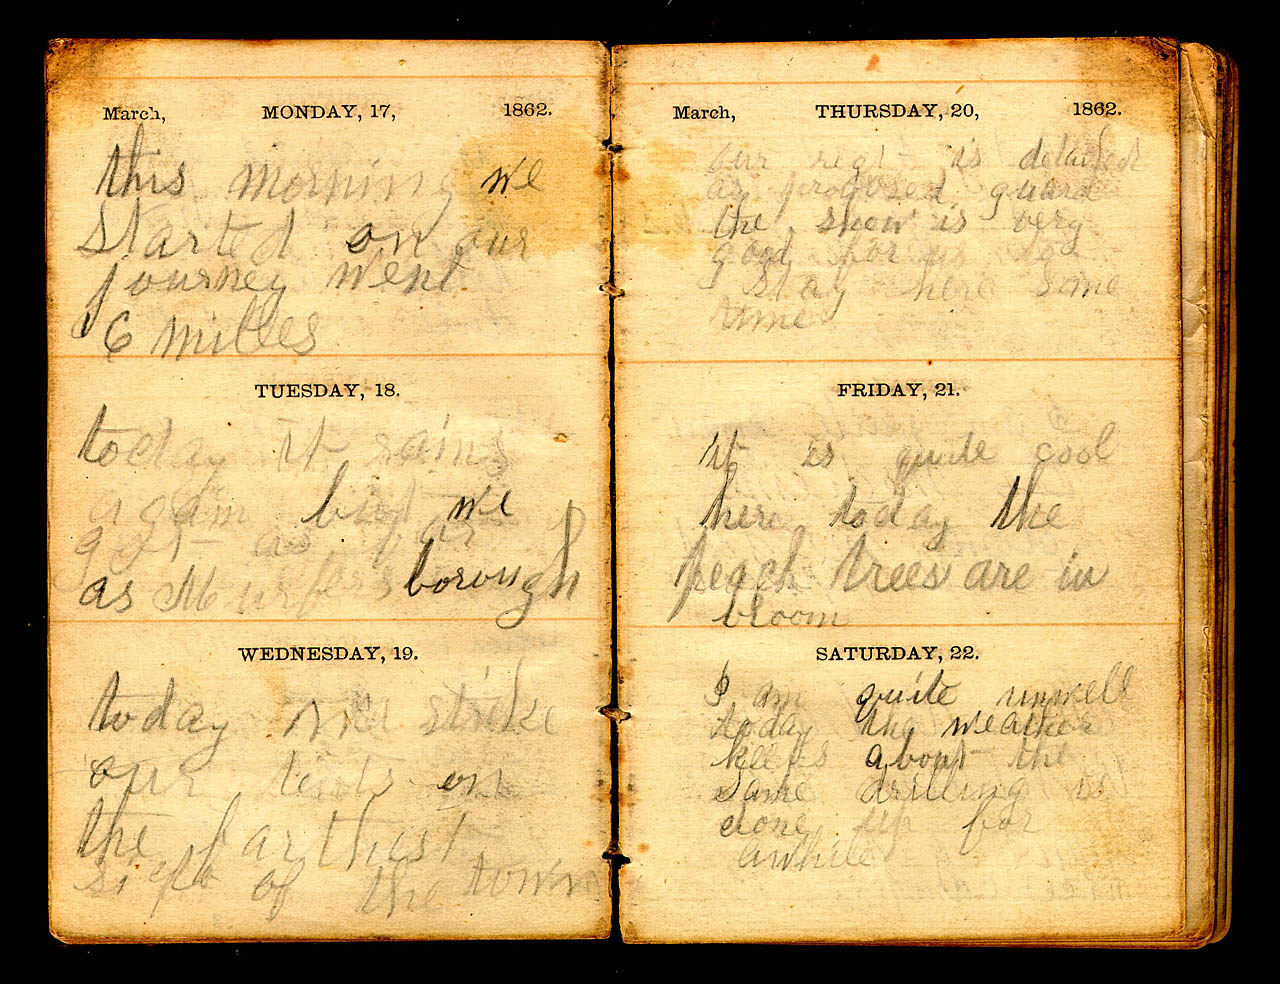 March, MONDAY, 17, 1862.
this morning we
started on our
journey went
16 miles
TUESDAY, 18.
today it rains
again but we
get as far
as Murfersborough
WEDNESDAY, 19.
today we strike
our tents on
the farthest
side of the town
March, THURSDAY, 20, 1862.
our regt is detailed
as provost guard
the show is very
good for us to
stay here some
time
FRIDAY, 21.
it is quite cool
here today the
peach trees are in
bloom
SATURDAY, 22.
I am quite unwell
today the weather
keeps about the
same drilling is
done up for
awhile